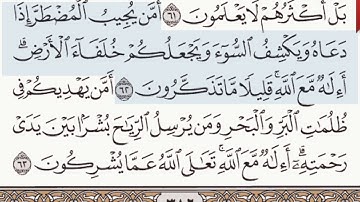 بَلْ أَكْثَرُهُمْ لَا يَعْلَمُونَ ٦١ أَمَّن يُجِيبُ الْمُضْطَرَّ إِذَا
دَعَاهُ وَيَكْشِفُ السُّوءَ وَيَجْعَلُكُمْ خُلَفَاءَ الْأَرْضِ ۗ
أَءِلَٰهٌ مَّعَ اللَّهِ ۚ قَلِيلًا مَّا تَذَكَّرُونَ ٦٢ أَمَّن يَهْدِيكُمْ فِي
ظُلُمَاتِ الْبَرِّ وَالْبَحْرِ وَمَن يُرْسِلُ الرِّيَاحَ بُشْرًا بَيْنَ يَدَيْ
رَحْمَتِهِ ۗ أَءِلَٰهٌ مَّعَ اللَّهِ ۚ تَعَالَى اللَّهُ عَمَّا يُشْرِكُونَ ٦٣